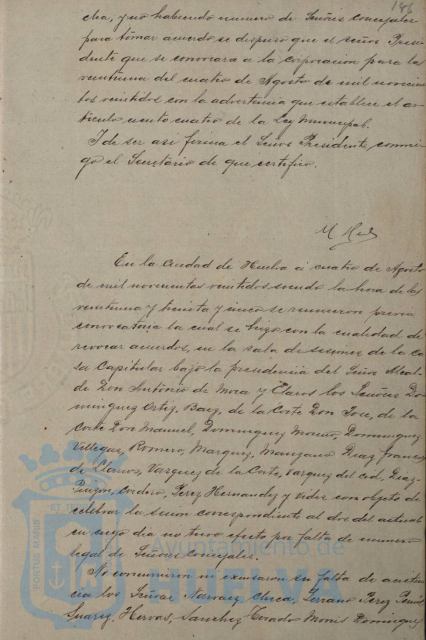 146
cha, y no habiendo numero de Señores concejales
para tomar acuerdo se dispuso que el señor Presi-
dente que se convocara a la corporacion para la
veintiuna del cuatro de Agosto de mil novecien-
tos veintidos con la advertencia que establece el ar-
ticulo ciento cuatro de la Ley Municipal.
Y de ser asi firma el Señor Presidente conmi-
go el Secretario de que certifico.
En la Ciudad de Huelva á cuatro de Agosto
de mil novecientos veintidos siendo la hora de las
veintiuna y treinta y cinco se reunieron previa
convocatoria la cual se hizo con la cualidad de
revocar acuerdos, en la sala de sesiones de la Ca-
sa Capitular bajo la presidencia del Señor Alcal-
de Don Antonio de Mora y Claros los Señores Do-
minguez Ortiz, Baez, de la Corte Don Jose, de la
Corte Don Manuel, Dominguez Dominguez
Villegas, Romero, Marquez, Manzano Diaz, Franco
de Llanos, Vazquez de la Corte, Vazquez del Cid, Diaz
Pinzon, Cordero, Perez Hernandez y Vides con objeto de
celebrar la sesion correspondiente al dos del actual
en cuyo dia no tuvo efecto por falta de numero
legal de Señores Concejales.
No concurrieron ni excusaron su falta de asisten-
cia los Señores Narvaez Checa, Serrano Perez
Suarez, Hervas, Sanchez Dominguez
Ayuntamiento de
HUELVA
PORTUS MARIS